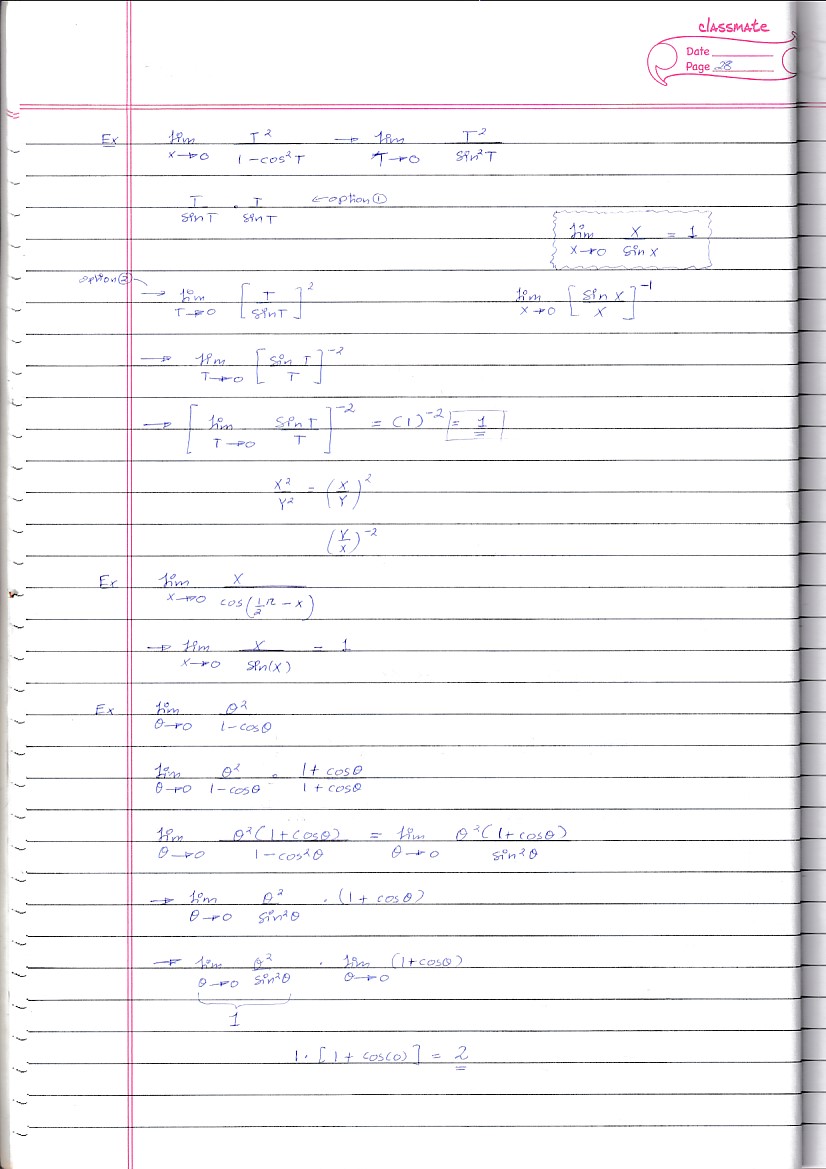 classmate
Date
Page 28
Ex lim x→0 T²/(1-cos²T) → lim T→0 T²/sin²T
T/sinT · T/sinT ←option①
lim x→0 x/sinx = 1
option②
→ lim T→0 [T/sinT]²
lim x→0 [sin x/x]⁻¹
→ lim T→0 [sin T/T]⁻²
→ [lim T→0 sin T/T]⁻² = (1)⁻² = 1
x²/y² = (x/y)²
(y/x)⁻²
Ex lim x→0 x/cos(½π - x)
→ lim x→0 x/sin(x) = 1
Ex lim θ→0 θ²/(1-cosθ)
lim θ→0 θ²/(1-cosθ) · (1+cosθ)/(1+cosθ)
lim θ→0 θ²(1+cosθ)/(1-cos²θ) = lim θ→0 θ²(1+cosθ)/sin²θ
→ lim θ→0 θ²/sin²θ · (1+cosθ)
→ lim θ→0 θ²/sin²θ · lim θ→0 (1+cosθ)
1
1·[1+cos(0)] = 2